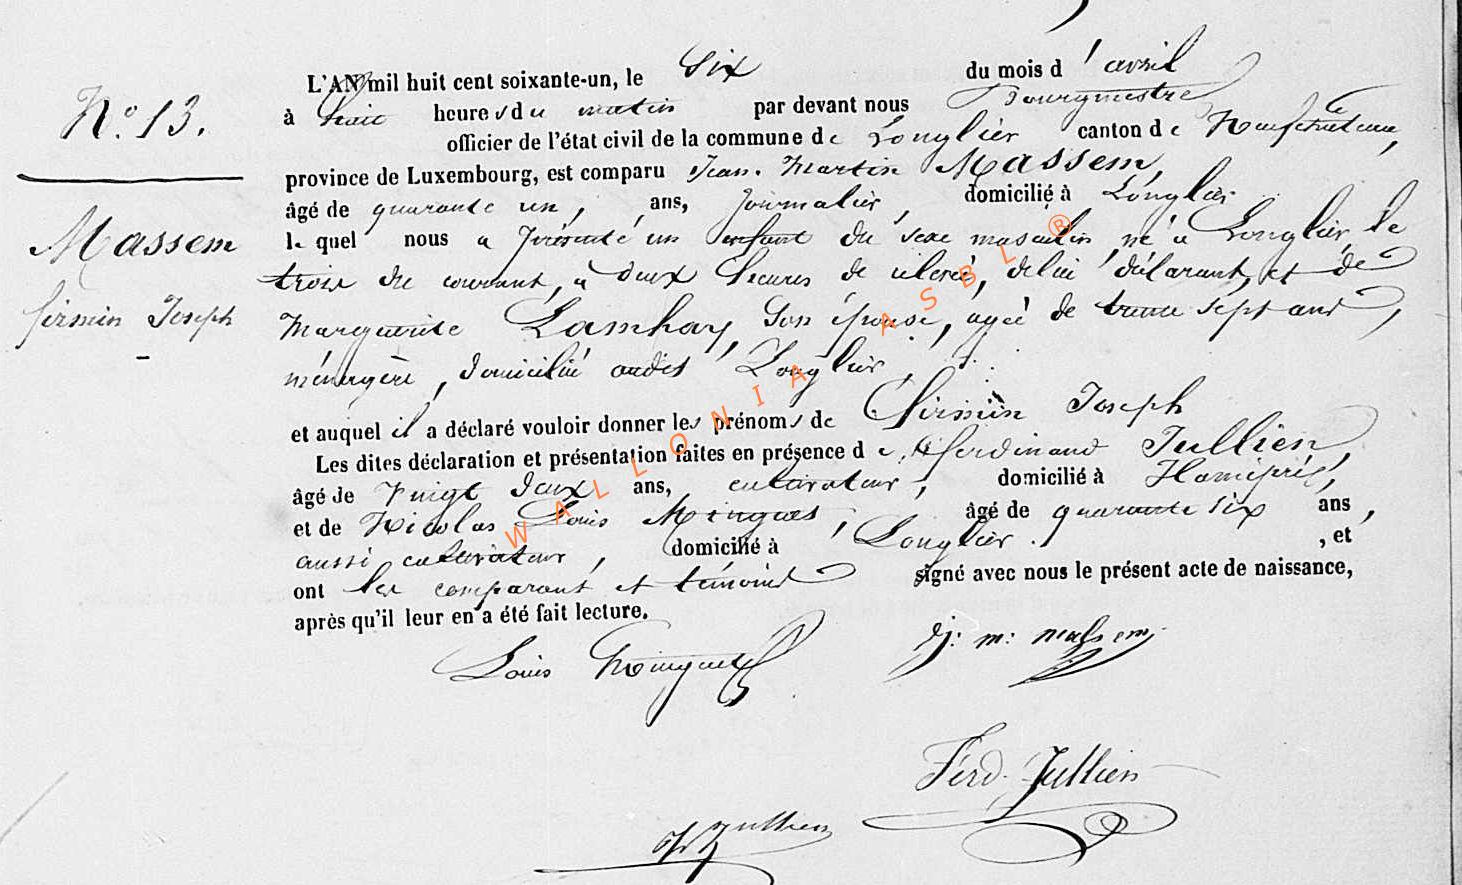 N° 13.
Massem
Firmin Joseph
L'AN mil huit cent soixante-un, le Six du mois d'avril
à huit heures du matin par devant nous Bourgmestre
officier de l'état civil de la commune de Longlier canton de Neufchâteau,
province de Luxembourg, est comparu Jean-Martin Massem,
âgé de quarante un, ans, journalier, domicilié à Longlier
lequel nous a présenté un enfant du sexe masculin né à Longlier, le
trois du courant, à deux heures de relevé, de lui déclarant, et de
Marguerite Lamhay, son épouse, agée de trente sept ans,
ménagère, domiciliée audit Longlier,
et auquel il a déclaré vouloir donner les prénoms de Firmin Joseph
Les dites déclaration et présentation faites en présence de Ferdinand Jullien,
âgé de vingt deux ans, cultivateur, domicilié à Hamipré,
et de Nicolas Louis Minguet, âgé de quarante six ans,
aussi cultivateur, domicilié à Longlier. , et
ont les comparant et témoins signé avec nous le présent acte de naissance,
après qu'il leur en a été fait lecture.
Louis Minguet j: m: massem
Ferd. Jullien
Jullien
WALLONIA ASBL ®